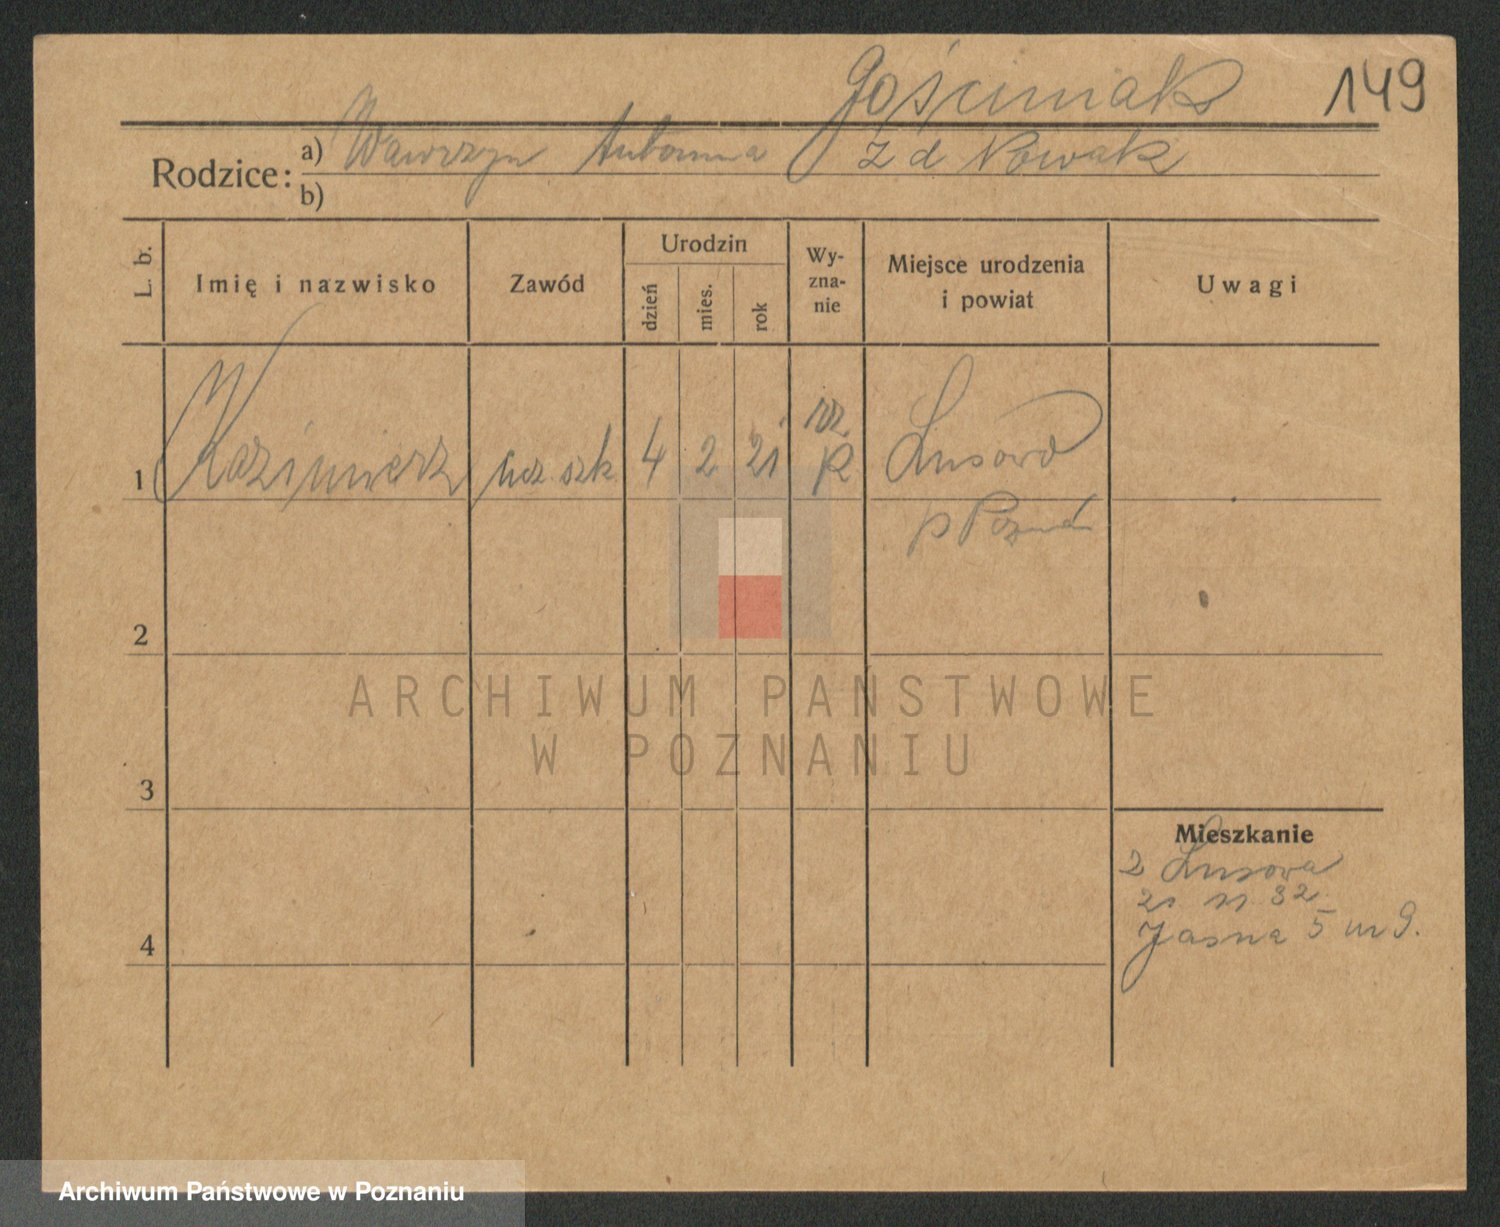 Gościniak 149
Rodzice: a) Wawrzyn Antonina z d Nowak
b)
L. b. Imię i nazwisko Zawód Urodzin dzień mies. rok Wy-zna-nie Miejsce urodzenia i powiat Uwagi
1 Kazimierz ucz. szk. 4 2 21 rz K Lusowo
p Poznań
2
ARCHIWUM PAŃSTWOWE
W POZNANIU
3
Mieszkanie
z Lusowa
32
4 Jasna 5 m 9.
Archiwum Państwowe w Poznaniu